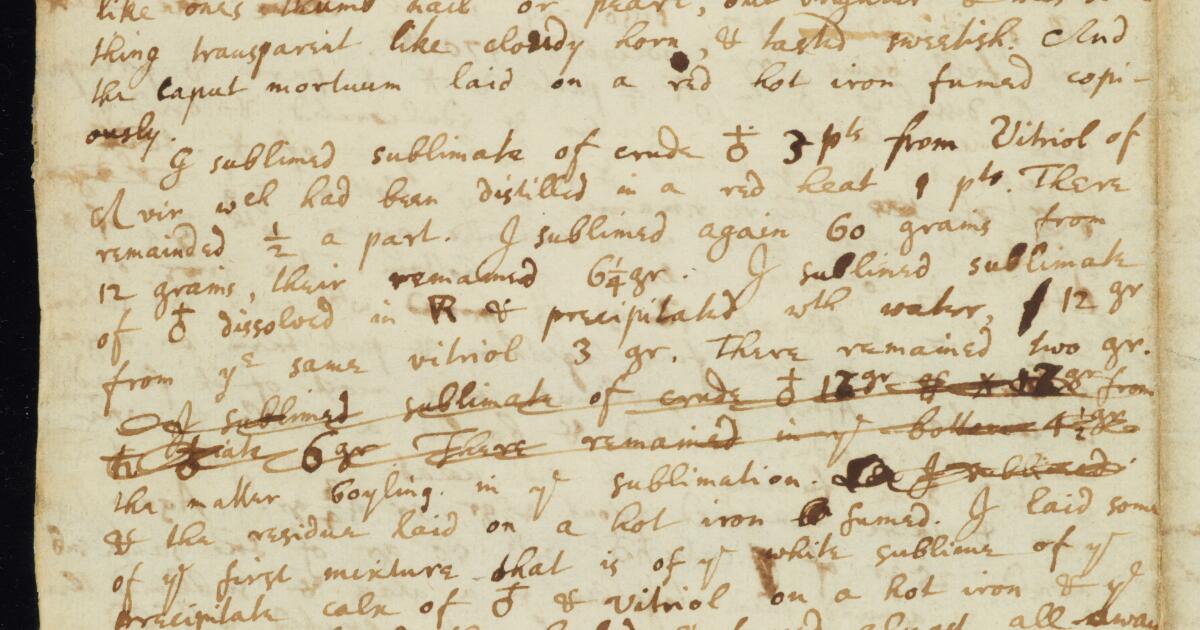 like ones thumb nail or pearl, one
thing transparent like cloudy horn, & tasted sweetish. And
the caput mortuum laid on a red hot iron fumed copi-
ously.
I sublimed sublimate of crude ♁ 3 pts from Vitriol of
wch had been distilled in a red heat 1 pts. There
remainded ½ a part. I sublimed again 60 grams from
12 grains, their remained 6¼gr. I sublined sublimate
of ♁ dissolved in & precipitated wth water, 12 gr
from ye same vitriol 3 gr. There remained two gr.
I sublimed sublimate of crude ♁ 12gr from
6gr There remained in ye bottom 4½gr
the matter boyling in ye sublimation. I sublimed
& the residue laid on a hot iron fumed. I laid some
of ye first mixture that is of ye white sublime of ye
precipitate calx of ♁ & Vitriol on a hot iron & ye
almost all away